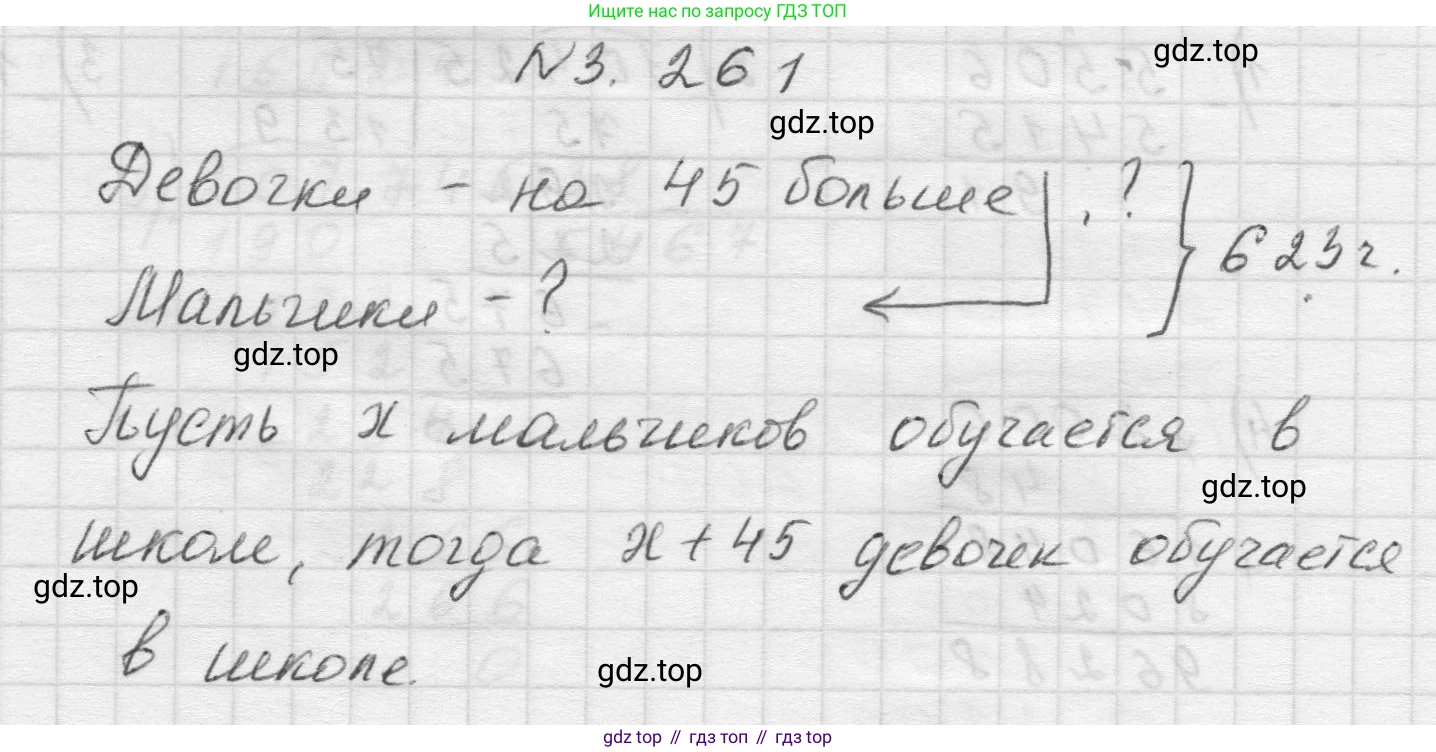 Ищите нас по запросу ГДЗ ТОП
N3. 261
gdz.top
gdz.top
Девочки - на 45 больше, ? } 623 ч.
Мальчики - ?
gdz.top
Пусть x мальчиков обучается в
gdz.top
школе, тогда x + 45 девочек обучается
gdz.top
в школе.
gdz.top
gdz top // гдз топ // гдз top